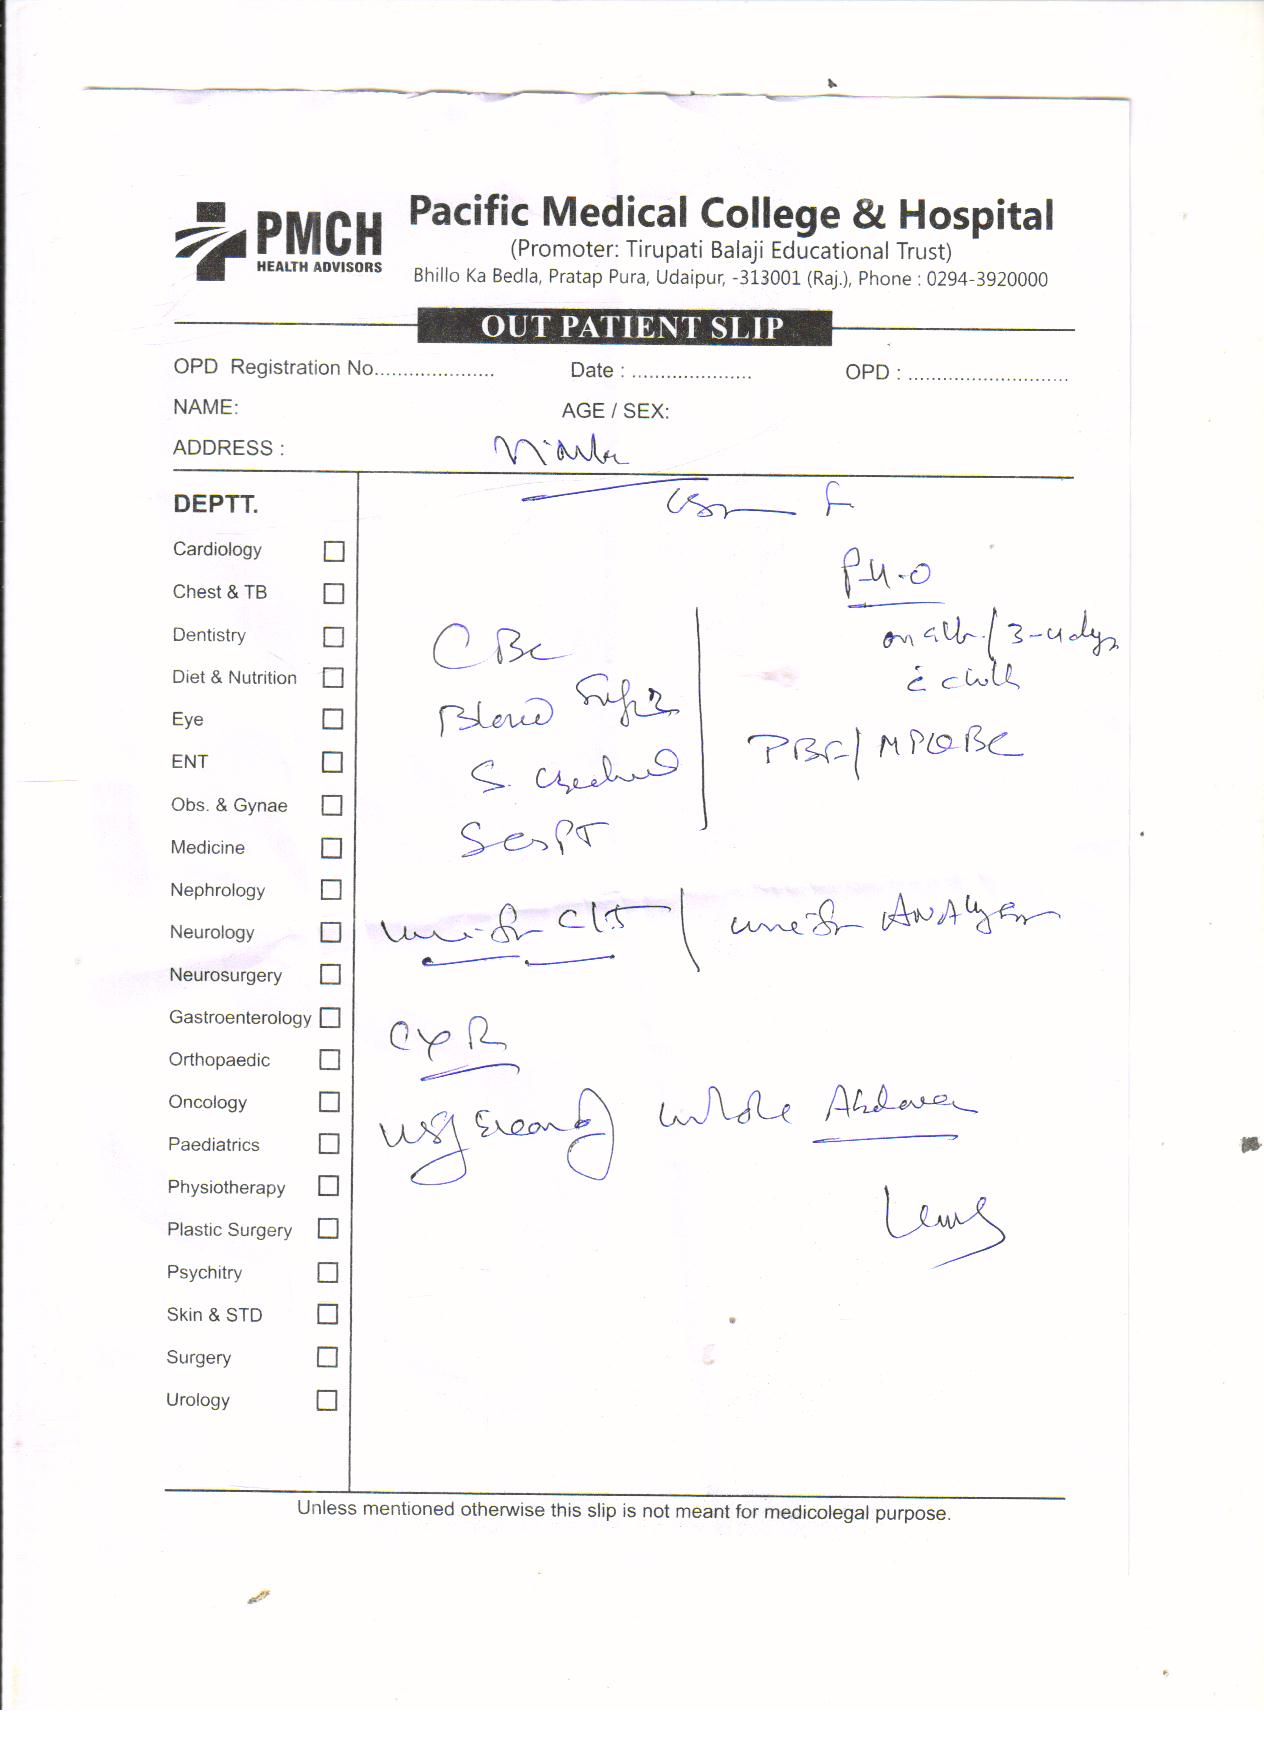 PMCH
HEALTH ADVISORS
Pacific Medical College & Hospital
(Promoter: Tirupati Balaji Educational Trust)
Bhillo Ka Bedla, Pratap Pura, Udaipur, -313001 (Raj.), Phone : 0294-3920000
OUT PATIENT SLIP
OPD Registration No..................... Date : ..................... OPD : ............................
NAME: AGE / SEX:
ADDRESS :
DEPTT.
Cardiology
Chest & TB
Dentistry
Diet & Nutrition
Eye
ENT
Obs. & Gynae
Medicine
Nephrology
Neurology
Neurosurgery
Gastroenterology
Orthopaedic
Oncology
Paediatrics
Physiotherapy
Plastic Surgery
Psychitry
Skin & STD
Surgery
Urology
F
P.U.O
3-4 days
c chills
CBC
Blood Sugar
PBF/ MP QBC
S.
SGPT
urine for C/S / urine for Analysis
CXR
USG whole Abdomen
Unless mentioned otherwise this slip is not meant for medicolegal purpose.